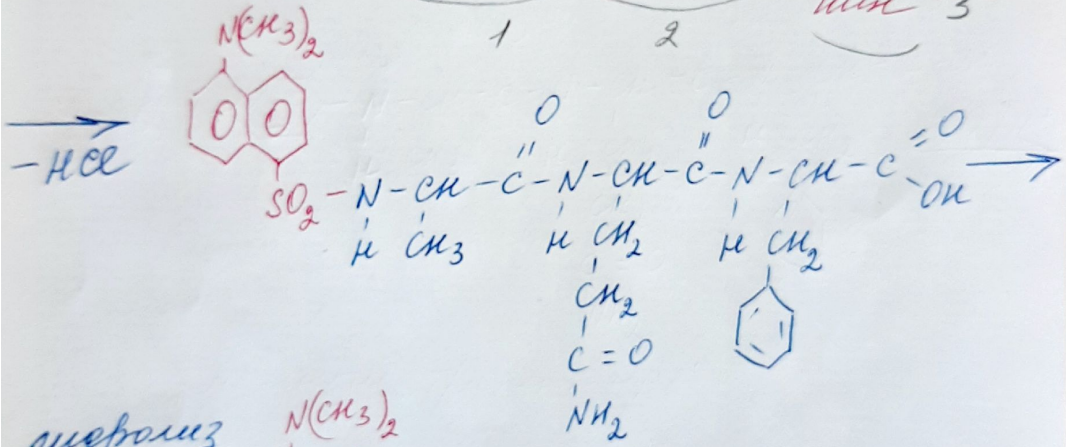 1 2 3
N(CH3)2
-HCl
SO2-N-CH-C-N-CH-C-N-CH-C=O
O O
OH
H CH3 H CH2 H CH2
CH2
C=O
NH2
N(CH3)2
гидролиз